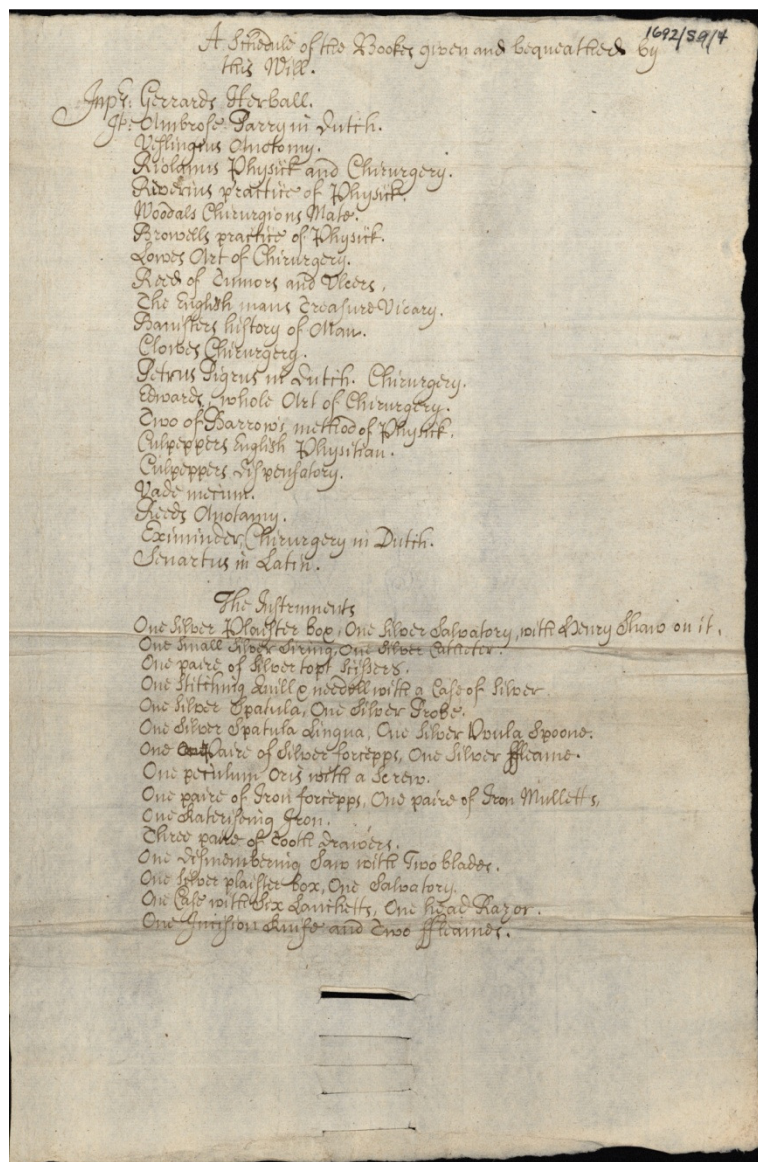 1692/59/4
A Schedule of the Bookes given and bequeathed by
this Will.
Inprs: Gerrards Herball.
It: Ambrose Parry in Dutch.
Veslingius Anotomy.
Riolanus Physick and Chirurgery.
Riverius practice of Physick.
Woodals Chirurgions Mate.
Browells practice of Physick.
Lowes Art of Chirurgery.
Reed of Tumors and Ulcers.
The English mans Treasure Vicary.
Banisters history of Man.
Clowes Chirurgery.
Petrus Pigrus in Dutch. Chirurgery.
Edwards, whole Art of Chirurgery.
Two of Barrows method of Physick.
Culpeppers English Physitian.
Culpeppers dispensatory.
Vade mecum.
Reeds Anotamy.
Examinder, Chirurgery in Dutch.
Senartus in Latin.
The Instruments
One Silver Plaister box, One Silver Salvatory, with Henry Shaw on it.
One Small Silver Siring, One Silver Catheter.
One paire of Silver topt Scissers.
One Stitching Quill & needell with a Case of Silver
One Silver Spatula, One Silver Probe.
One Silver Spatula Lingua, One Silver Uvula Spoone.
One Paire of Silver forcepps, One Silver ffleame.
One peculum Oris with a Screw.
One paire of Iron forcepps, One paire of Iron Mulletts,
One Katerising Iron.
Three paire of Tooth drawers.
One dismembering Saw with Two blades.
One Silver plaister box, One Salvatory.
One Case with Six Lanchetts, One head Razor.
One Incision Knife and Two ffleames.